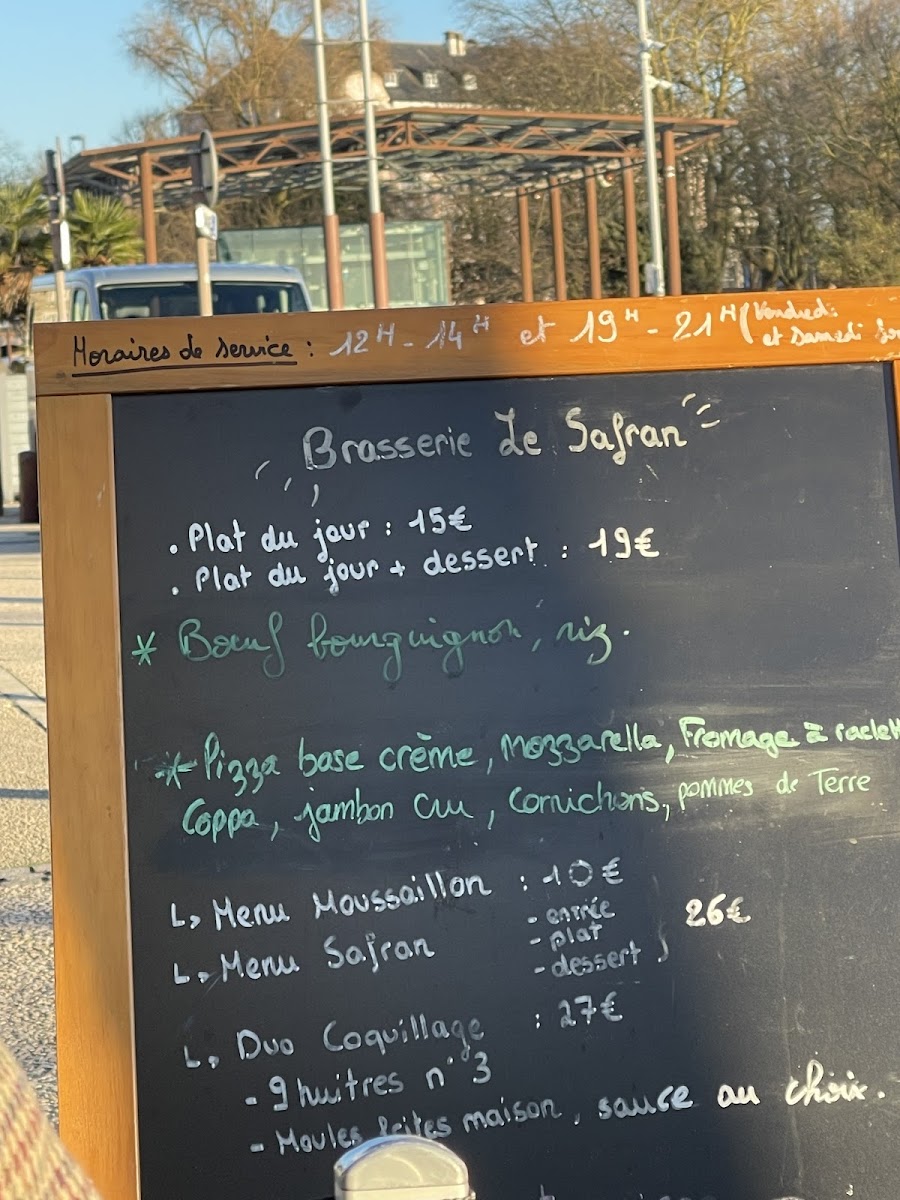 Horaires de service : 12H - 14H et 19H - 21H (Vendredi
et Samedi
Brasserie Le Safran
. Plat du jour : 15€
. Plat du jour + dessert : 19€
* Bœuf bourguignon, riz.
* Pizza base crème, Mozzarella, Fromage à raclett
Coppa, jambon cru, cornichons, pommes de Terre
↳ Menu Moussaillon : 10€
↳ Menu Safran - entrée
- plat
- dessert 26€
↳ Duo Coquillage : 27€
- 9 huitres n°3
- Moules frites maison, sauce au choix.